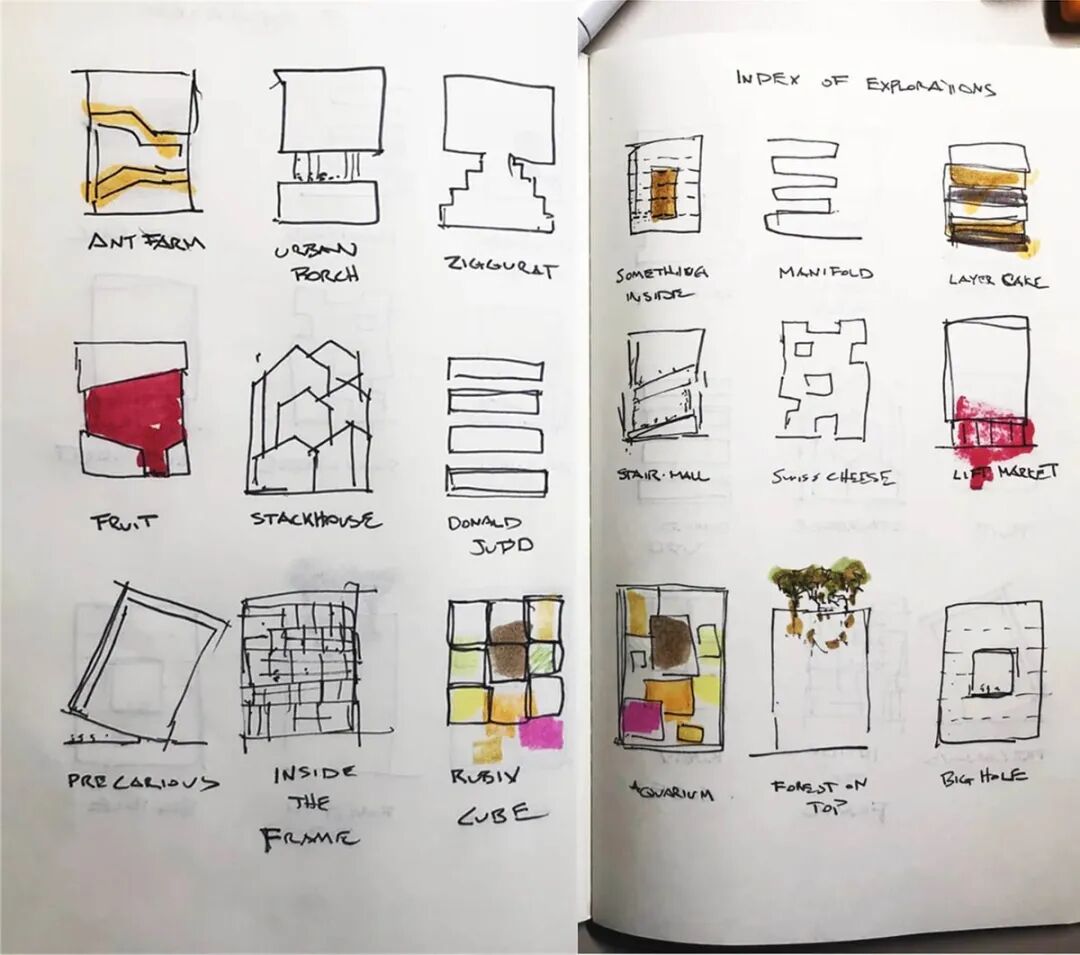 ANT FARM
URBAN
PORCH
ZIGGURAT
FRUIT
STACKHOUSE
DONALD
JUDD
PRECARIOUS
INSIDE
THE
FRAME
RUBIX
CUBE
INDEX OF EXPLORATIONS
SOMETHING
INSIDE
MANIFOLD
LAYER CAKE
STAIR-MALL
SWISS CHEESE
LIFT MARKET
AQUARIUM
FOREST ON
TOP
BIG HOLE